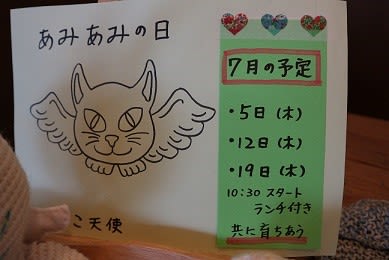 あみあみの日
こ天使
7月の予定
・5日(木)
・12日(木)
・19日(木)
10:30 スタート
ランチ付き
共に育ちあう